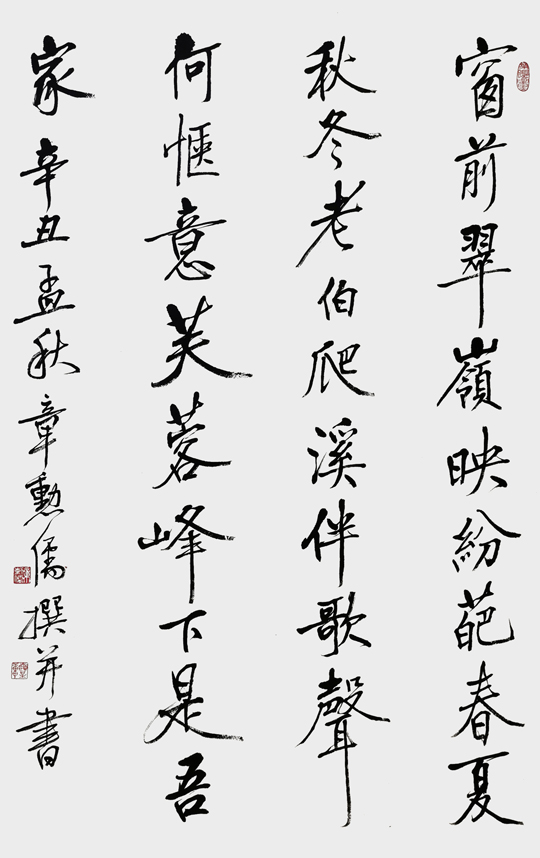 窗前翠嶺映紛葩春夏
秋冬老伯爬溪伴歌聲
何愜意芙蓉峰下是吾
家 辛丑孟秋章勳儒撰并書